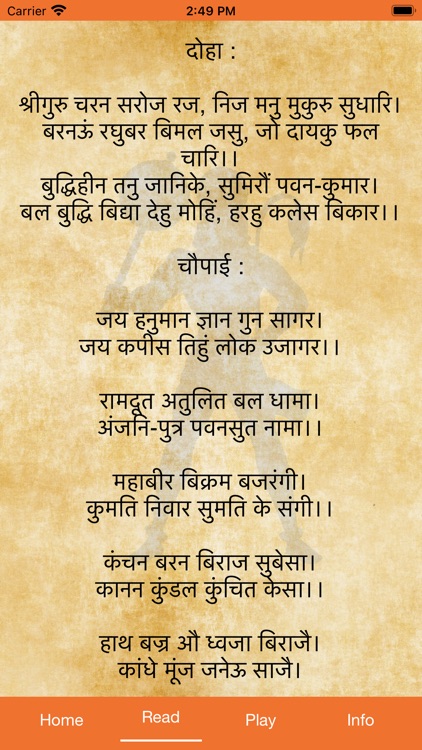 Carrier 2:49 PM
दोहा :
श्रीगुरु चरन सरोज रज, निज मनु मुकुरु सुधारि।
बरनऊं रघुबर बिमल जसु, जो दायकु फल
चारि।।
बुद्धिहीन तनु जानिके, सुमिरौं पवन-कुमार।
बल बुद्धि बिद्या देहु मोहिं, हरहु कलेस बिकार।।
चौपाई :
जय हनुमान ज्ञान गुन सागर।
जय कपीस तिहुं लोक उजागर।।
रामदूत अतुलित बल धामा।
अंजनि-पुत्र पवनसुत नामा।।
महाबीर बिक्रम बजरंगी।
कुमति निवार सुमति के संगी।।
कंचन बरन बिराज सुबेसा।
कानन कुंडल कुंचित केसा।।
हाथ बज्र औ ध्वजा बिराजै।
कांधे मूंज जनेऊ साजै।
Home Read Play Info